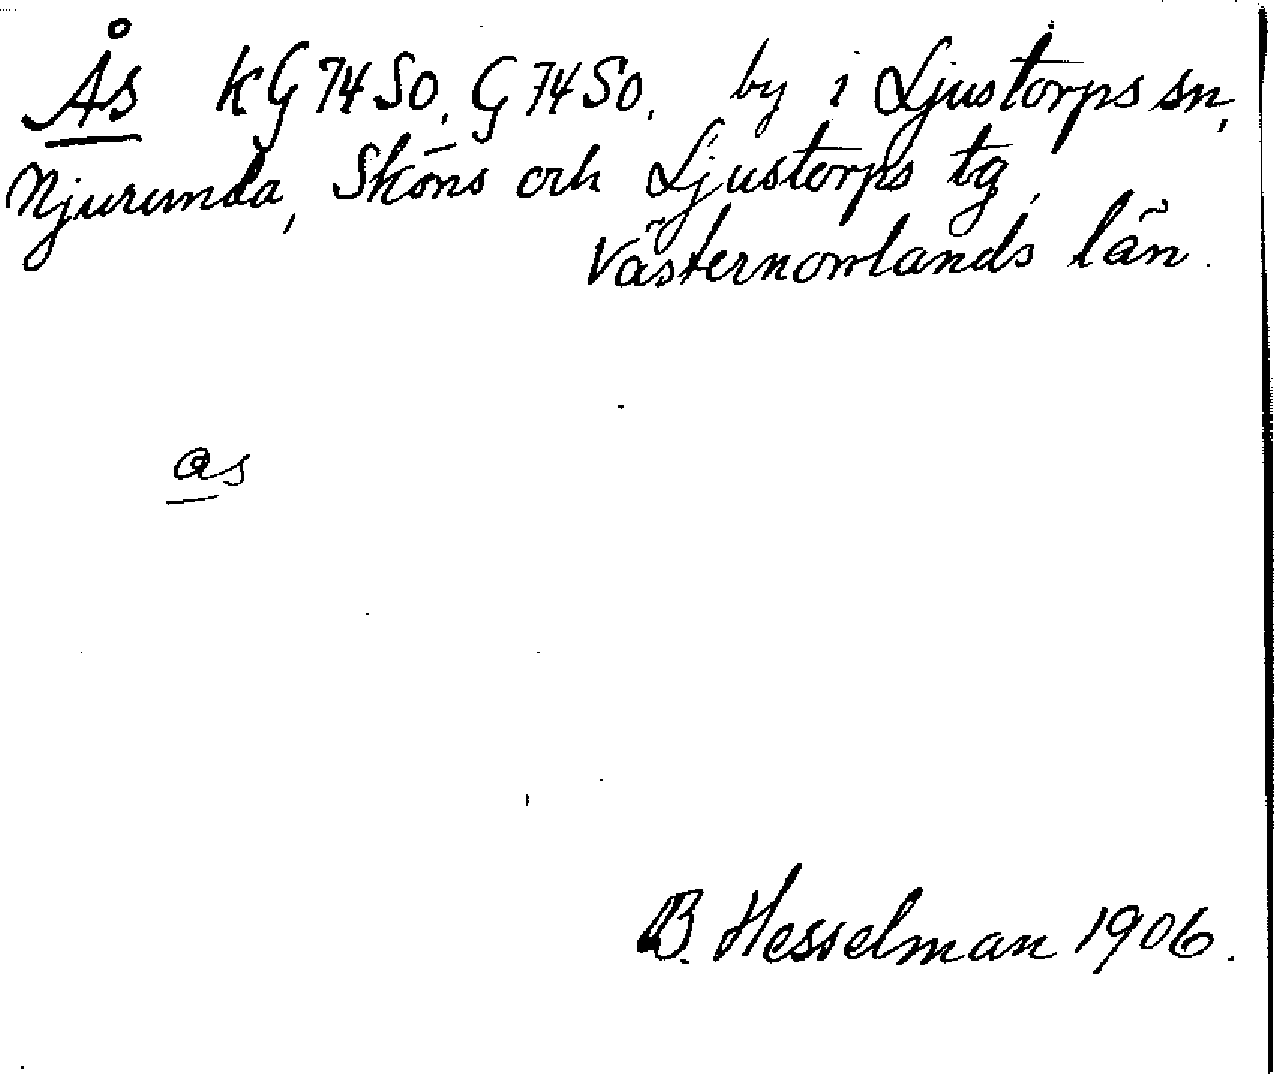 Ås KG 74 SO, G 74 SO, by i Ljustorps sn,
Njurunda, Sköns och Ljustorps tg,
Västernorrlands län.
as
B. Hesselman 1906.